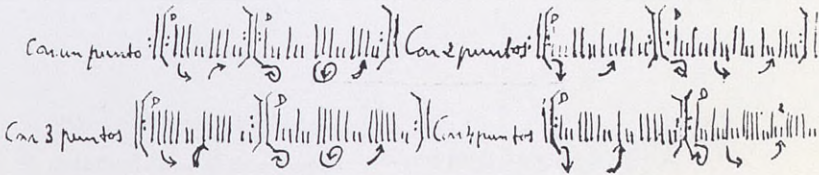 Con un punto Con 2 puntos
Con 3 puntos Con 4 puntos